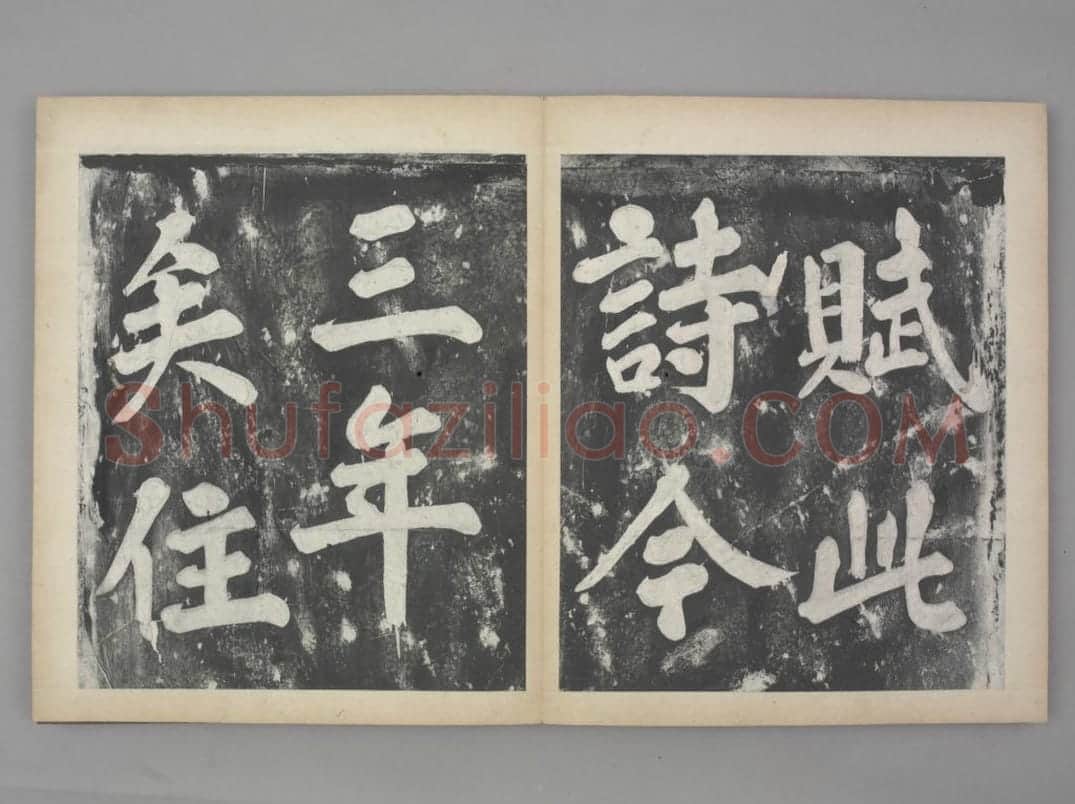 賦此
詩今
三年
矣住
Shufaziliao.COM